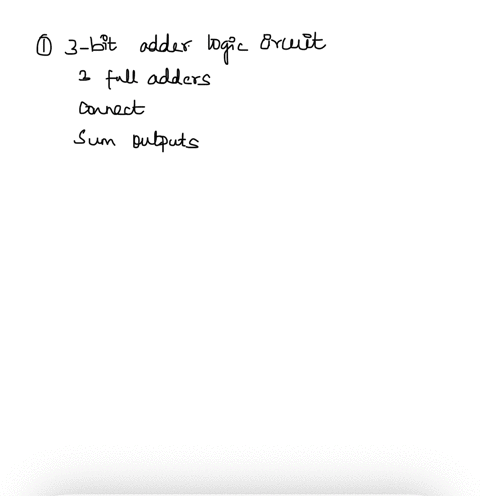 ① 3-bit adder logic circuit
2 full adders
connect
Sum outputs